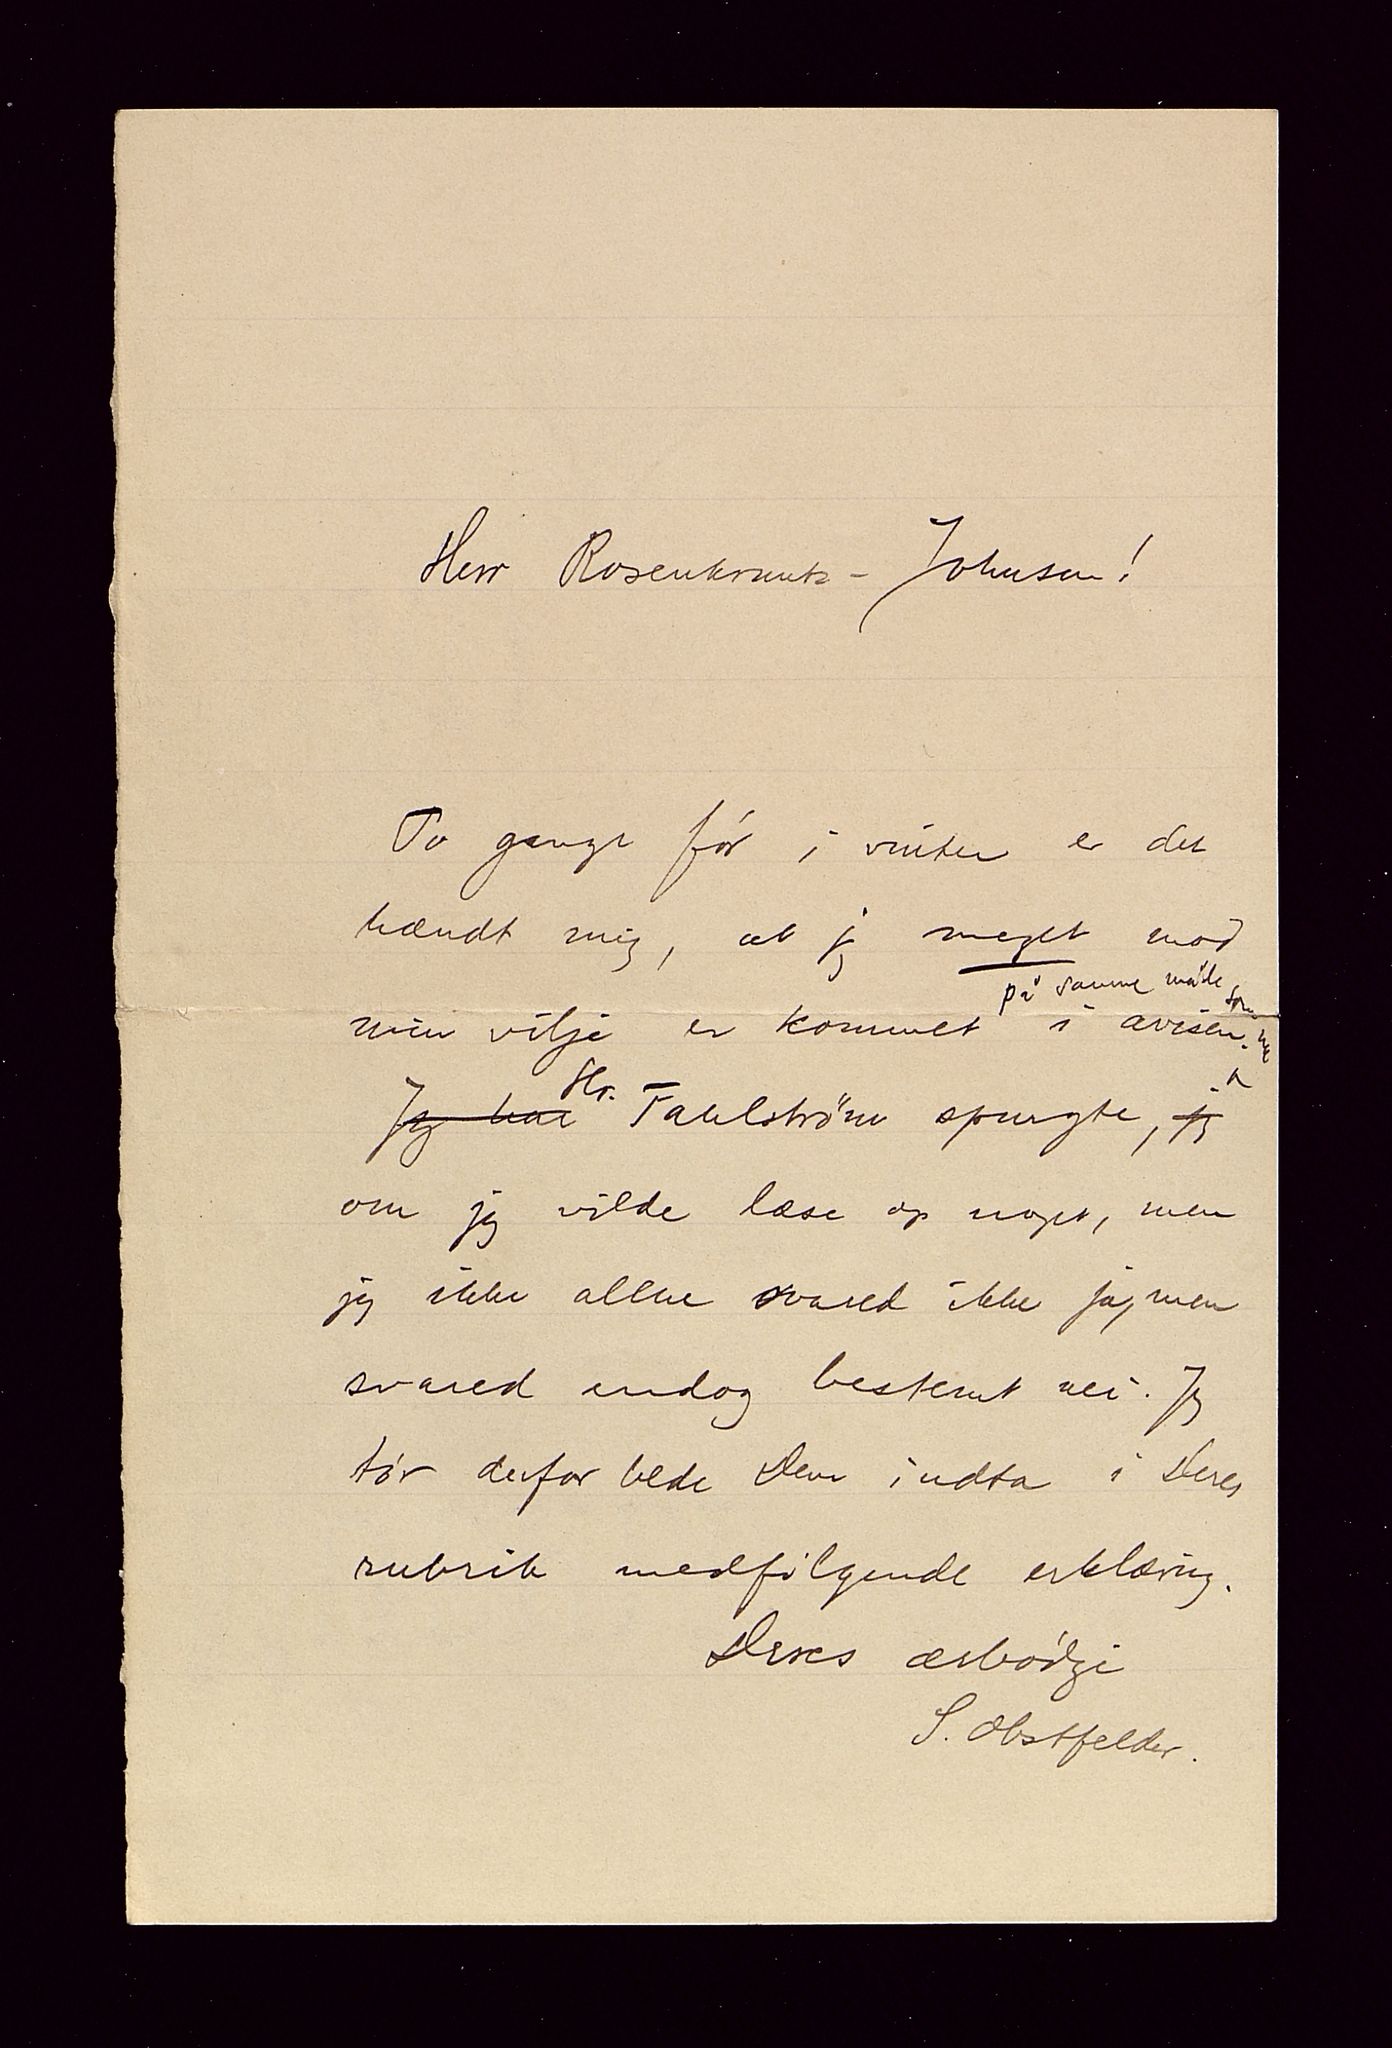 Herr Rosenkrantz-Johnsen!
To gange før i vinter er det
hændt mig, at jeg meget mod
på samme måde som nu
min vilje er kommet i avisen.
Hr.
Jeg har Fahlstrøm spurgte, jeg
om jeg vilde læse op noget, men
jeg ikke allene svared ikke ja, men
svared endog bestemt nei. Jeg
tør derfor bede Dem indta i Deres
rubrik medfølgende erklæring.
Deres ærbødige
S. Obstfelder.